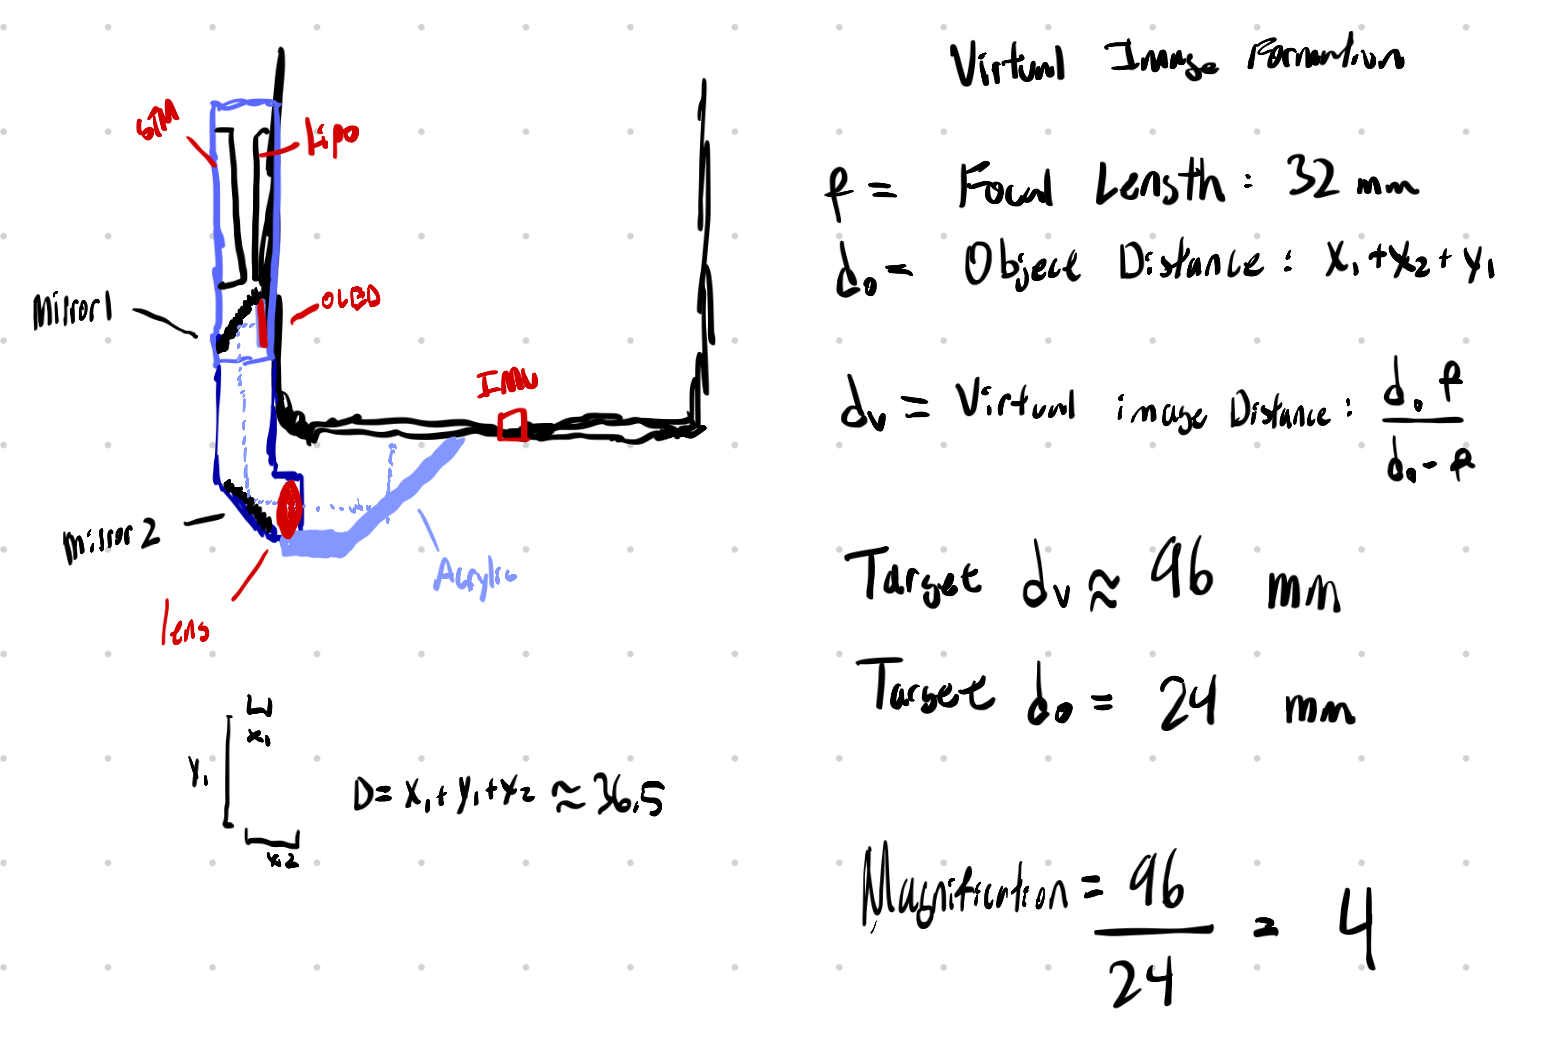 STM
Lipo
Mirror 1
OLED
IMU
Mirror 2
Acrylic
lens
x₁
y₁
x₂
D = x₁ + y₁ + x₂ ≈ 36.5
Virtual Image Formation
f = Focal Length : 32 mm
d₀ = Object Distance : x₁ + x₂ + y₁
dᵥ = Virtual image Distance : d₀ f / d₀ - f
Target dᵥ ≈ 96 mm
Target d₀ = 24 mm
Magnification = 96 / 24 = 4